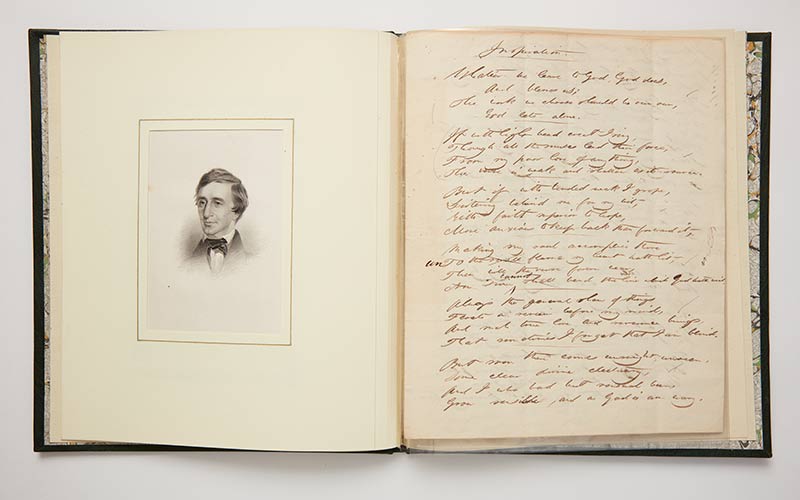 Inspiration.
Whateer we leave to God, God does,
And blesses us;
The work we choose should be our own,
God lets alone.
If with light head erect I sing,
Though all the muses lend their force,
From my poor love of anything,
The verse is weak and shallow as its source.
But if with bended neck I grope,
Listening behind me for my wit
With faith superior to hope,
More anxious to keep back than forward it,
Making my soul accomplice there
un To the flame my heart hath lit
Then will the verse forever wear
cannot
Time bend the line which God hath writ
Always the general show of things
Floats in review before my mind,
And such true love and reverence brings,
That sometimes I forget that I am blind.
But soon there comes unsought unseen,
Some clear divine electuary,
And I who had but sensual been,
Grow sensible, and as God is am wary.